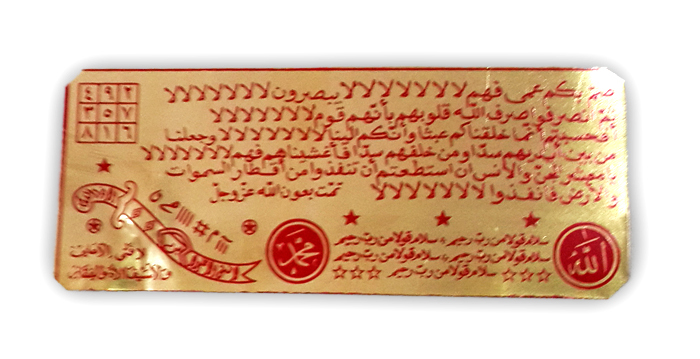 صم بكم عمى فهم لا لا لا لا لا لا لا لا يبصرون لا لا لا لا لا لا لا
ثم انصرفوا صرف الله قلوبهم بأنهم قوم لا لا لا لا لا لا لا
أفحسبتم أنما خلقناكم عبثا وأنكم إلينا لا لا لا لا لا لا لا وجعلنا
من بين أيديهم سدا ومن خلفهم سدا فأغشيناهم فهم لا لا لا لا لا لا لا
يا معشر الجن والانس إن استطعتم أن تنفذوا من أقطار السموات
والارض فانفذوا لا لا لا لا لا لا لا تمت بعون الله عز وجل
٤ ٩ ٢
٣ ٥ ٧
٨ ١ ٦
سلام قولا من رب رحيم سلام قولا من رب رحيم
سلام قولا من رب رحيم سلام قولا من رب رحيم
سلام قولا من رب رحيم
الله
محمد
لا فتى إلا علي
ولا سيف إلا ذو الفقار